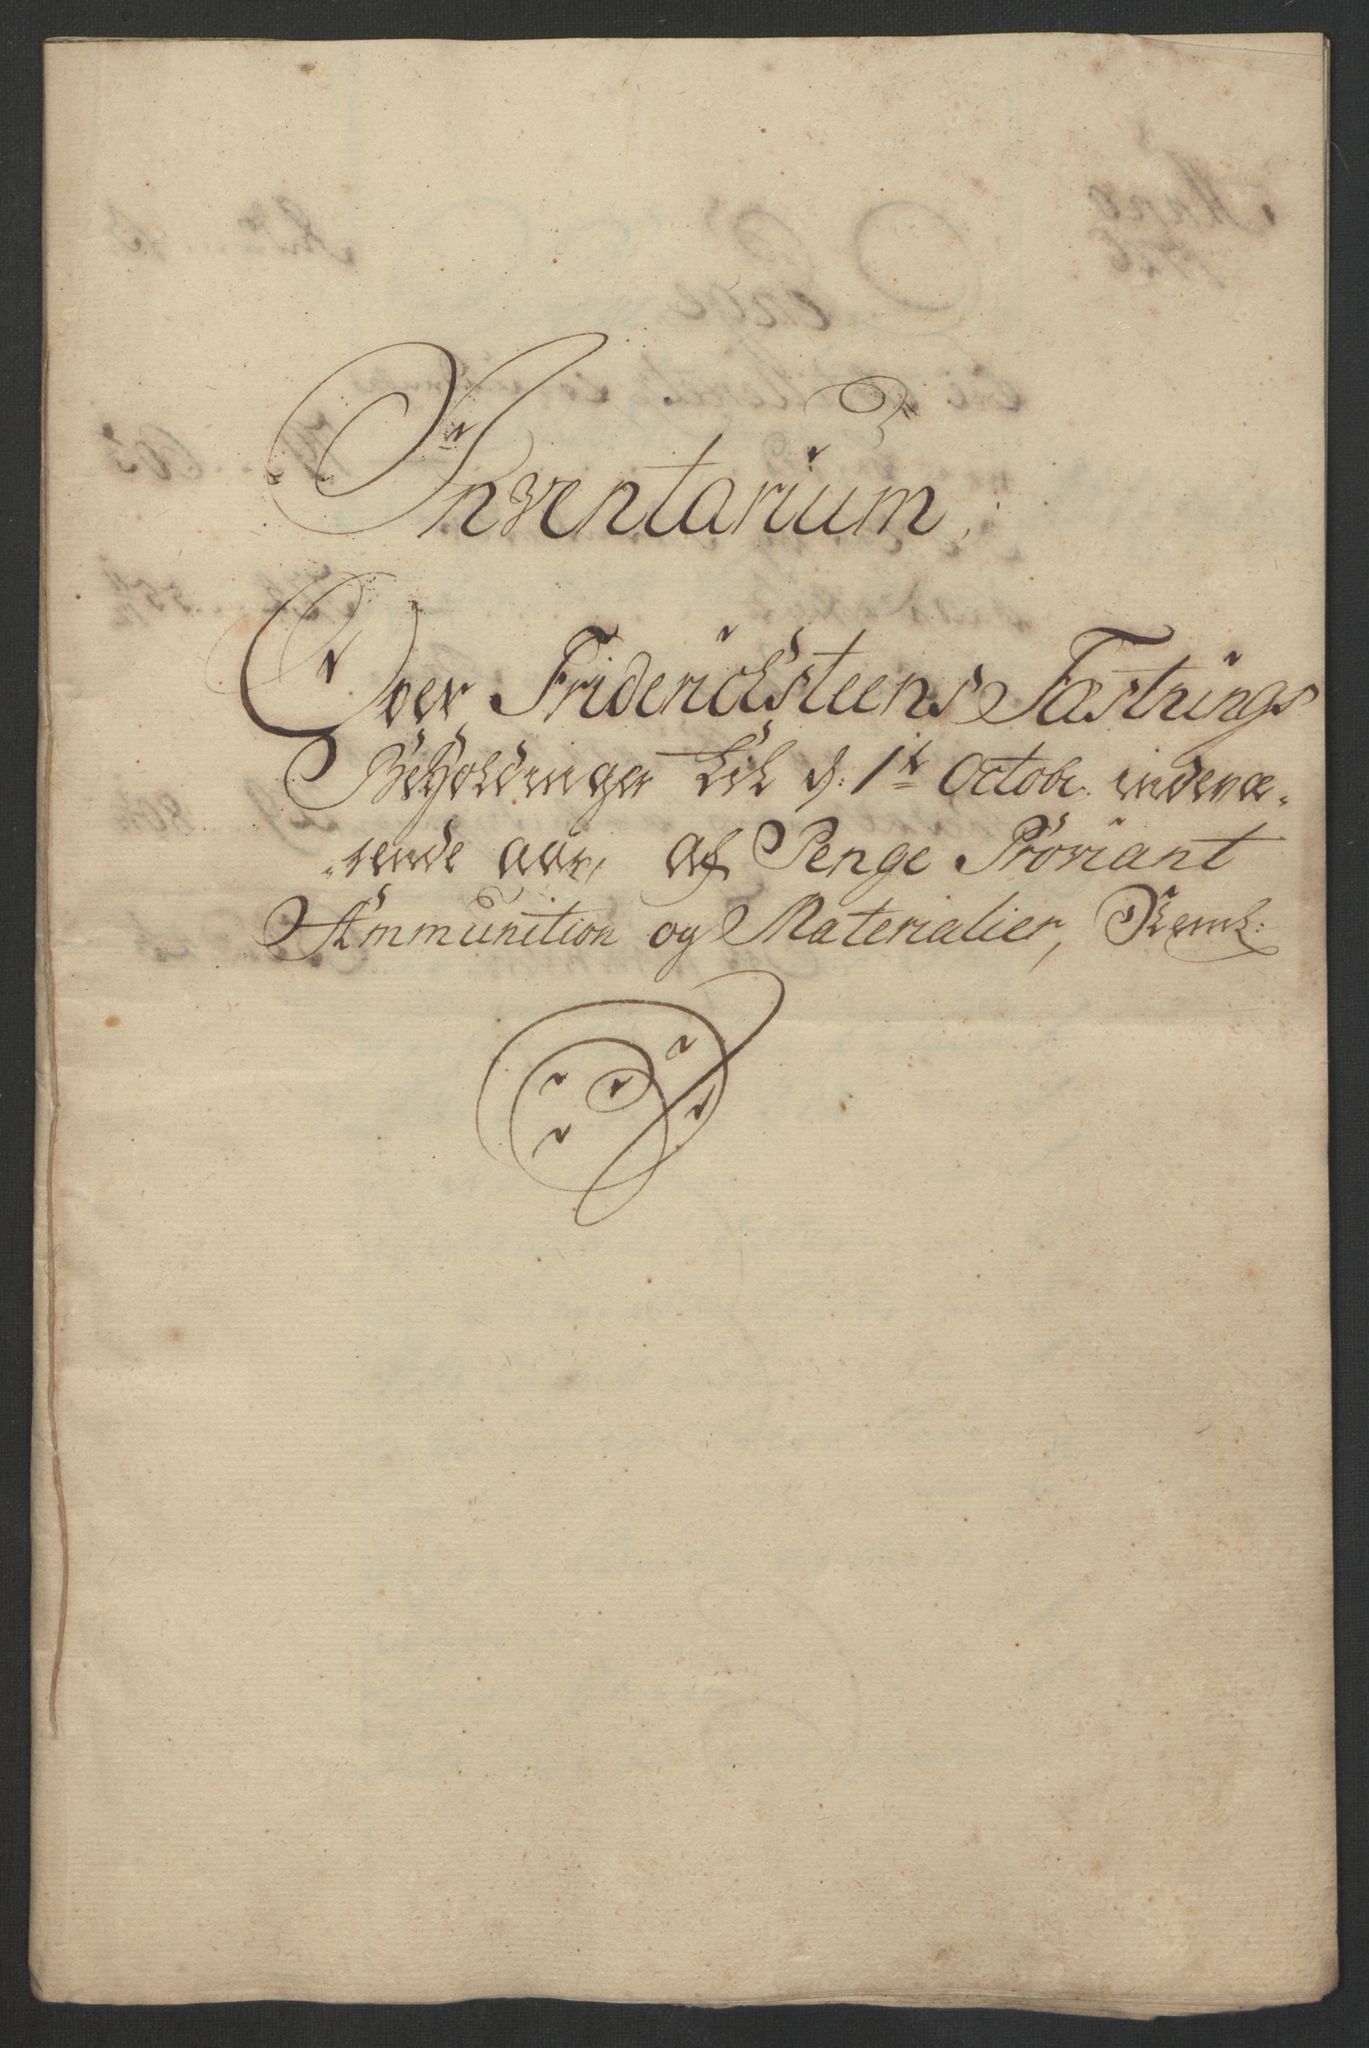 Inventarium,
Over Friderichsteens Fæstnings
Beholdninger til d: 1te Octobr. indevæ-
-rende aar, af Penge Proviant
Ammunition og Materialier,